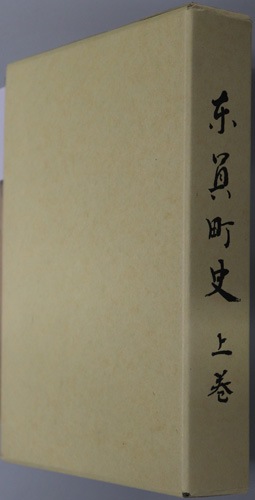 东員町史 上巻